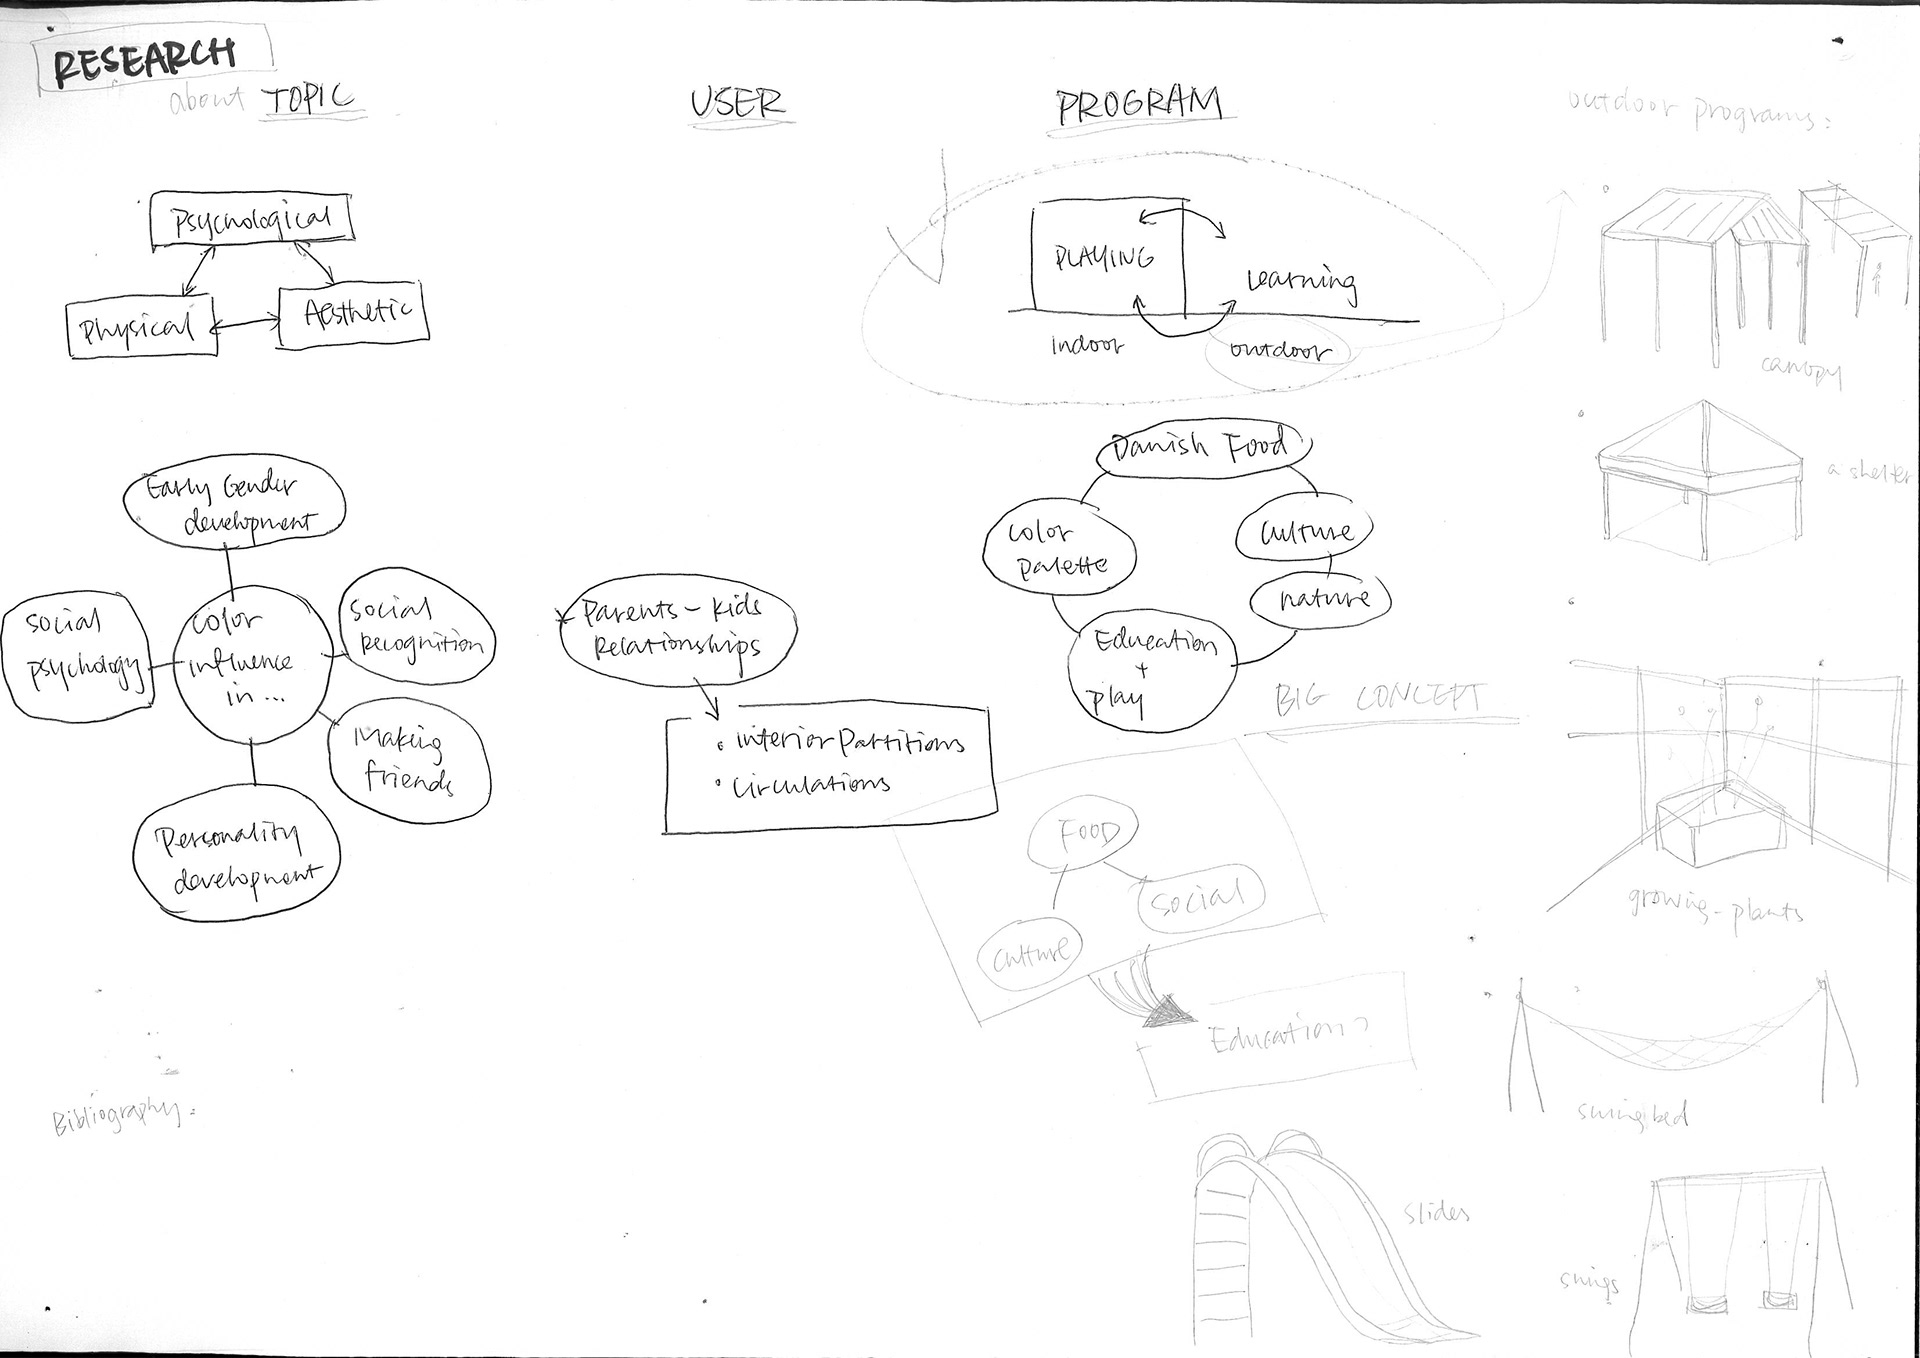 RESEARCH
about TOPIC
USER
PROGRAM
outdoor programs:
Psychological
Physical
Aesthetic
PLAYING
Learning
indoor
outdoor
canopy
a shelter
Early Gender
development
social
psychology
color
influence
in ...
social
recognition
Making
friends
Personality
development
Parents - Kids
Relationships
• interior Partitions
• circulations
Danish Food
color
palette
culture
nature
Education
+
play
BIG CONCEPT
FOOD
social
culture
Education
growing-plants
swing bed
slides
swings
Bibliography: